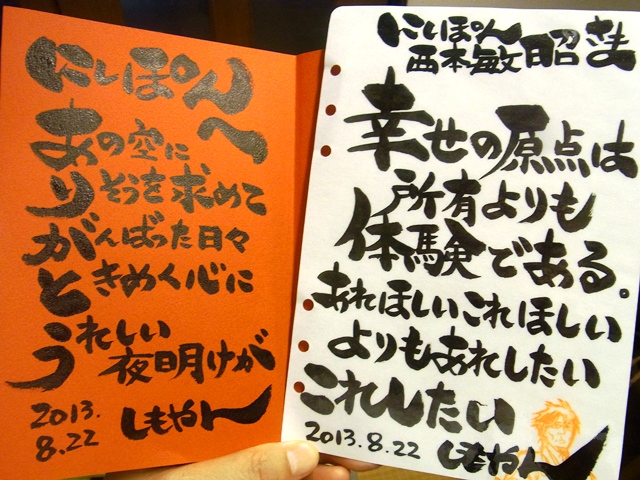 にしぽんへ
あの空に
りそうを求めて
がんばった日々
ときめく心に
うれしい
夜明けが
2013.
8.22
しもやん
にしぽん
西本敏昭さま
幸せの原点は
所有よりも
体験である。
あれほしいこれほしい
よりもあれしたい
これしたい
2013.8.22
しもやん